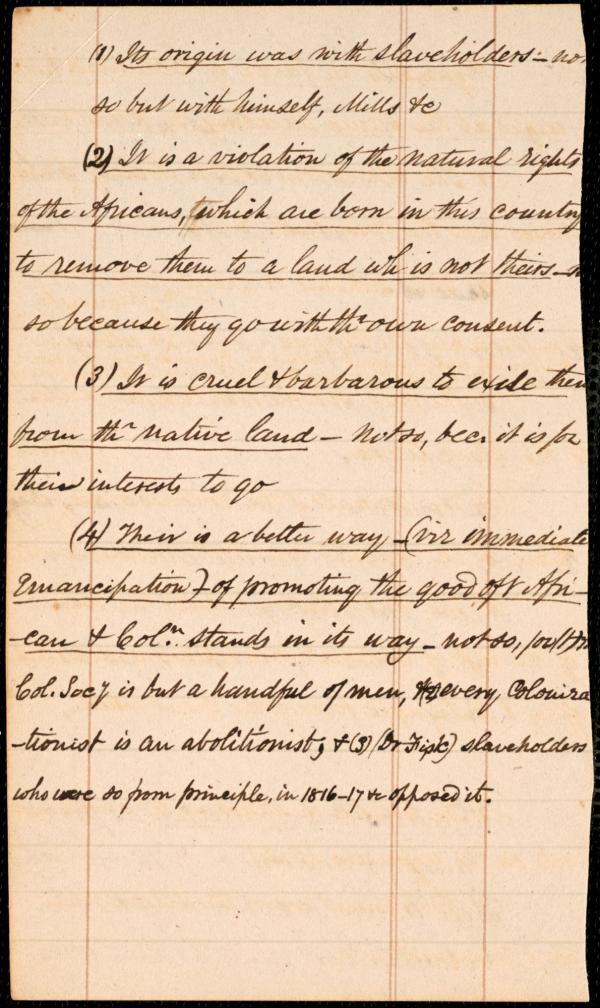 (1) Its origin was with slaveholders – no
so but with himself, Mills &c
(2) It is a violation of the natural rights
of the Africans, which are born in this country
to remove them to a land wh is not theirs –
so because they go with thr own consent.
(3) It is cruel & barbarous to exile them
from thr native land – not so, bec. it is for
their interests to go
(4) Their is a better way – (viz immediate
Emancipation) – of promoting the good of t Afri-
-can & Coln. stands in its way – not so, for
Col. Socy is but a handful of men, every Coloniza
-tionist is an abolitionist, & (3) (Dr Fisk) slaveholders
who were so from principle, in 1816–17 &c opposed it.